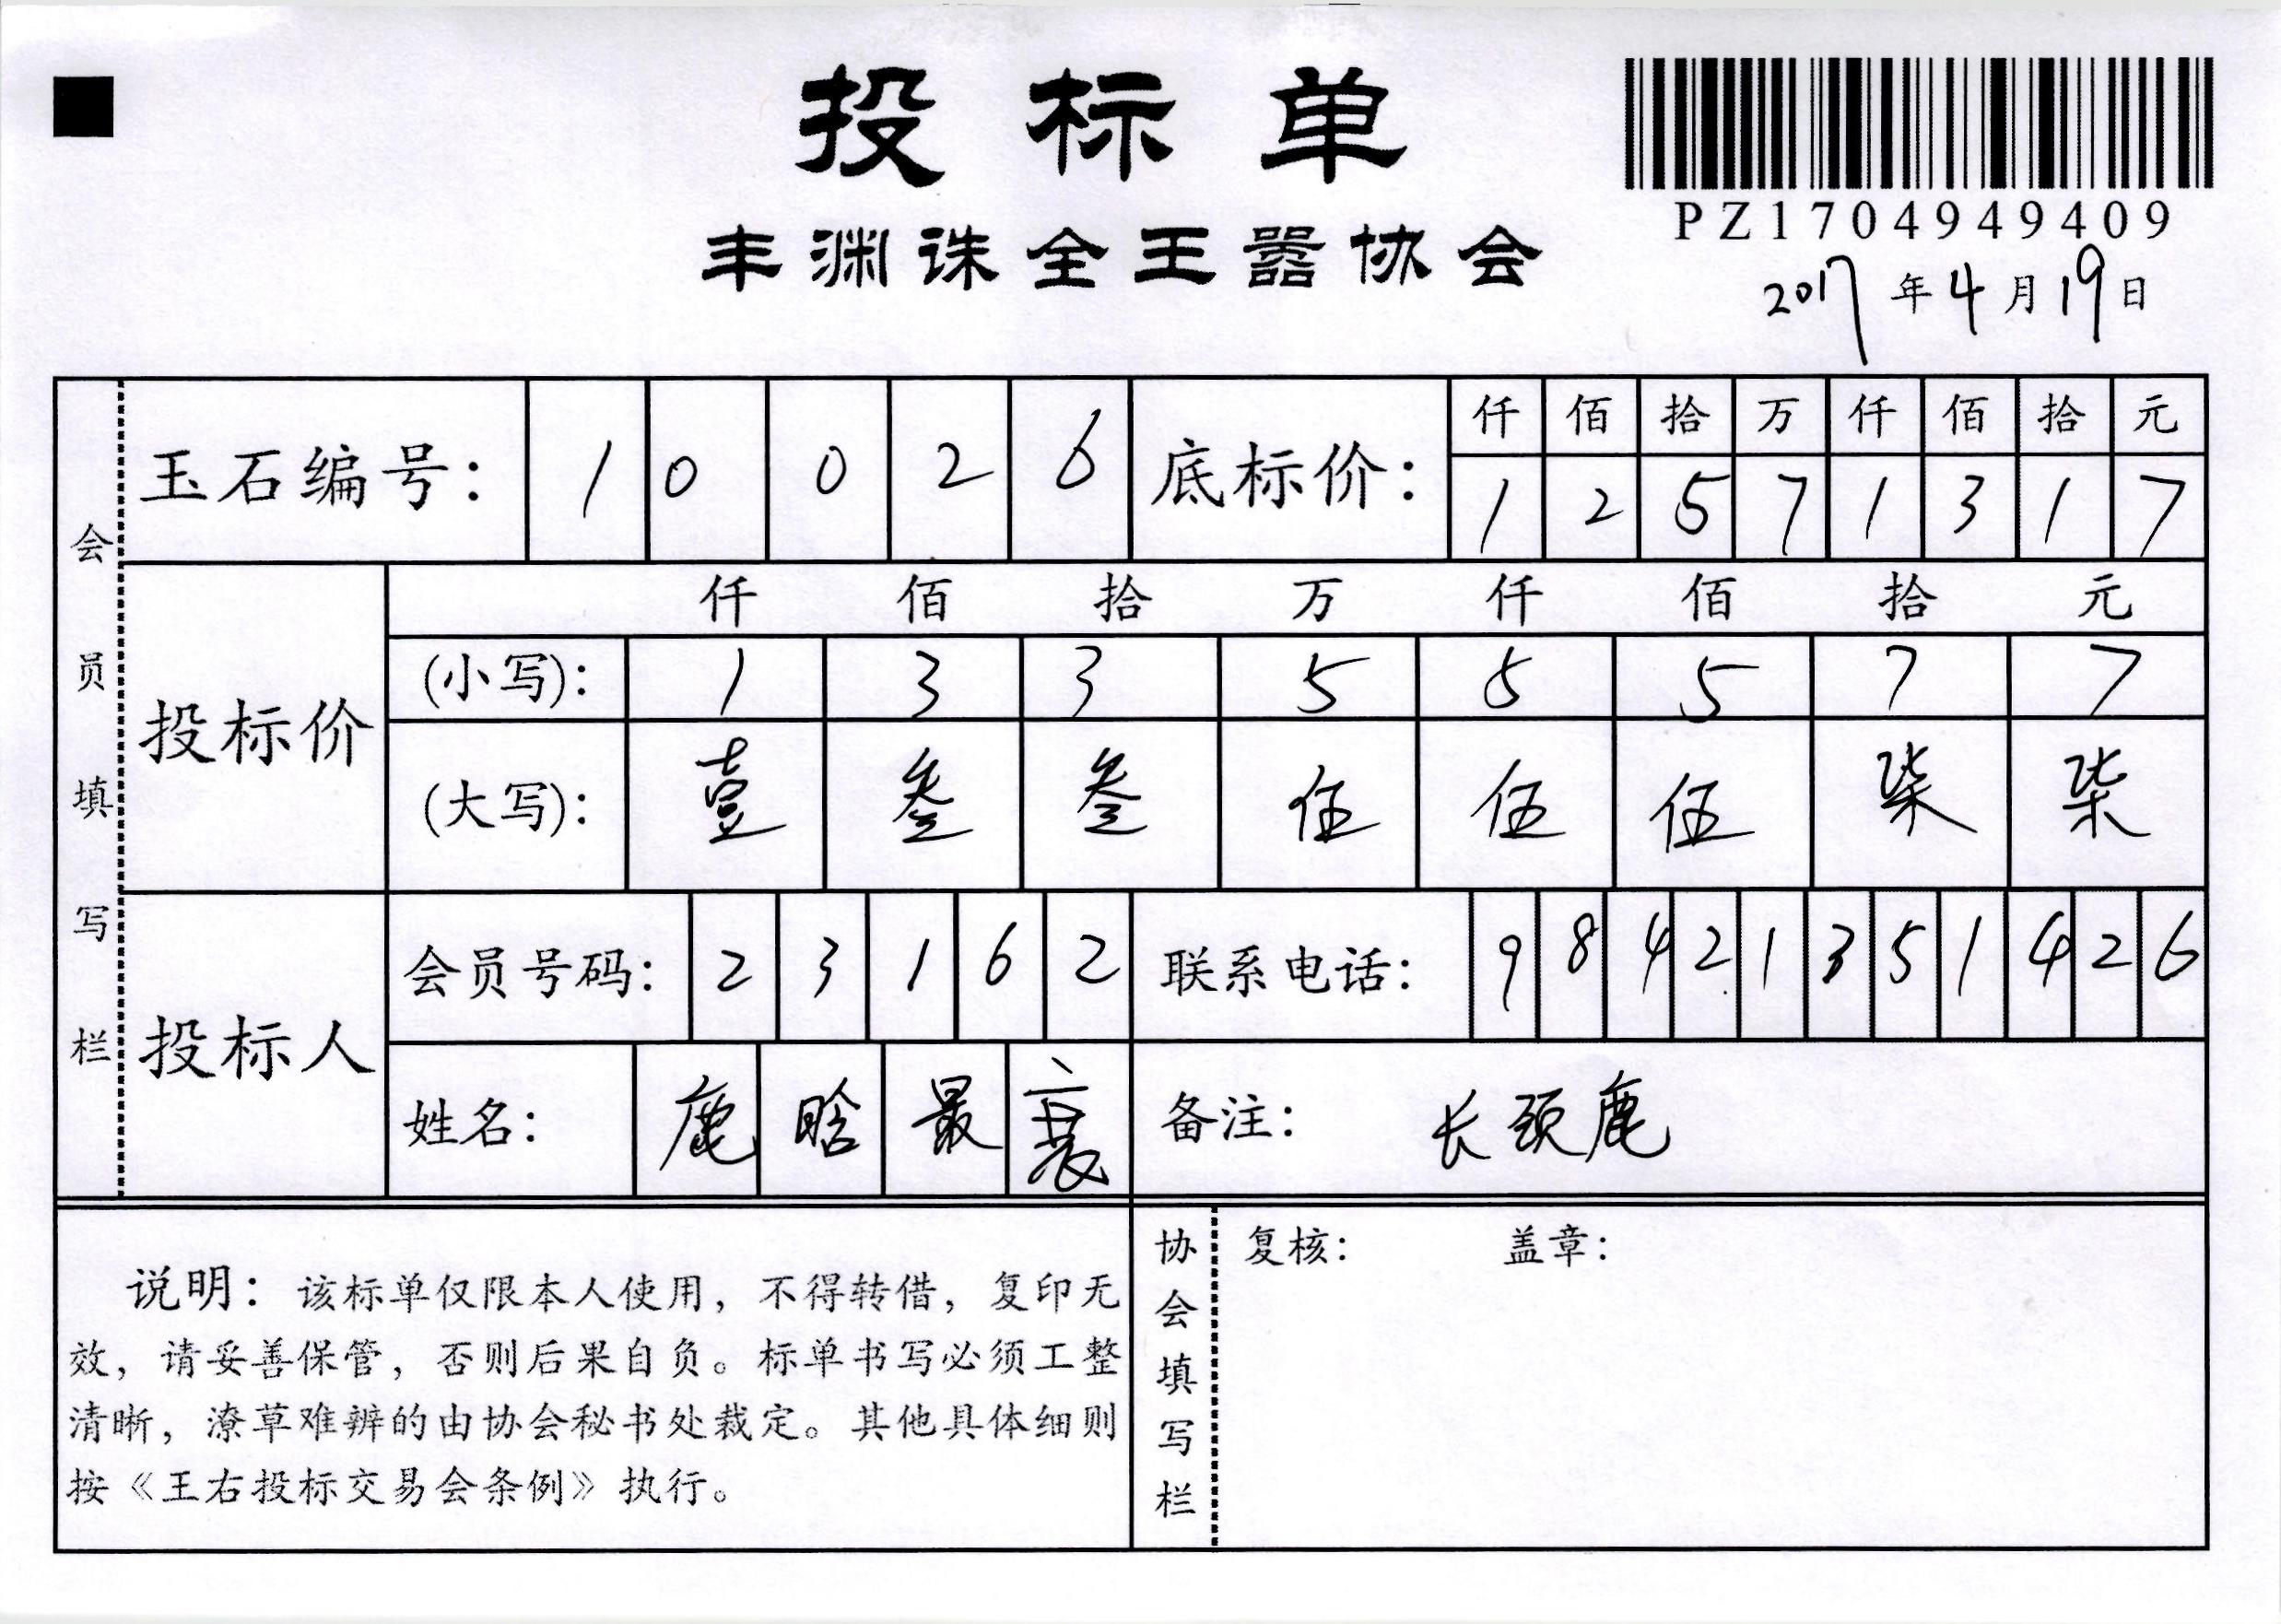 投标单
PZ1704949409
丰渊诛全王嚣协会
2017年4月19日
会员填写栏
玉石编号: 1 0 0 2 6
底标价:
仟 佰 拾 万 仟 佰 拾 元
1 2 5 7 1 3 1 7
投标价
仟 佰 拾 万 仟 佰 拾 元
(小写): 1 3 3 5 5 5 7 7
(大写): 壹 叁 叁 伍 伍 伍 柒 柒
投标人
会员号码: 2 3 1 6 2
联系电话: 9 8 4 2 1 3 5 1 4 2 6
姓名: 鹿 晗 最
备注: 长颈鹿
说明: 该标单仅限本人使用, 不得转借, 复印无
效, 请妥善保管, 否则后果自负。标单书写必须工整
清晰, 潦草难辨的由协会秘书处裁定。其他具体细则
按《王右投标交易会条例》执行。
协会填写栏
复核: 盖章: